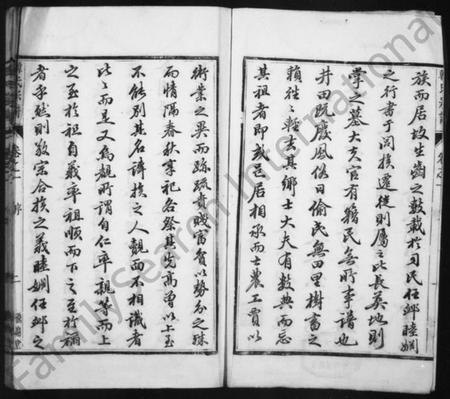 族而居故生齒之數載於司民任卹睦婣
之行書于閭族遷徙則屬之比長萬地則
掌之墓大夫官有籍民無所事譜也
井田既廢風俗日偷民無田里樹畜之
賴往往輕去其鄉士大夫有數典而忘
其祖者即或邑居相承而士農工賈以
術業之異而踈疏貴賤富貧以勢分之殊
而情隔春秋享祀各祭其先高曾以上至
不能別其名諱族之人覿面不相識者
比比而是又烏覩所謂自仁率親等而上
之至於祖自義率祖順而下之至於禰
者乎然則敬宗合族之義睦婣任卹之
卷之一
序
二
FamilySearch International